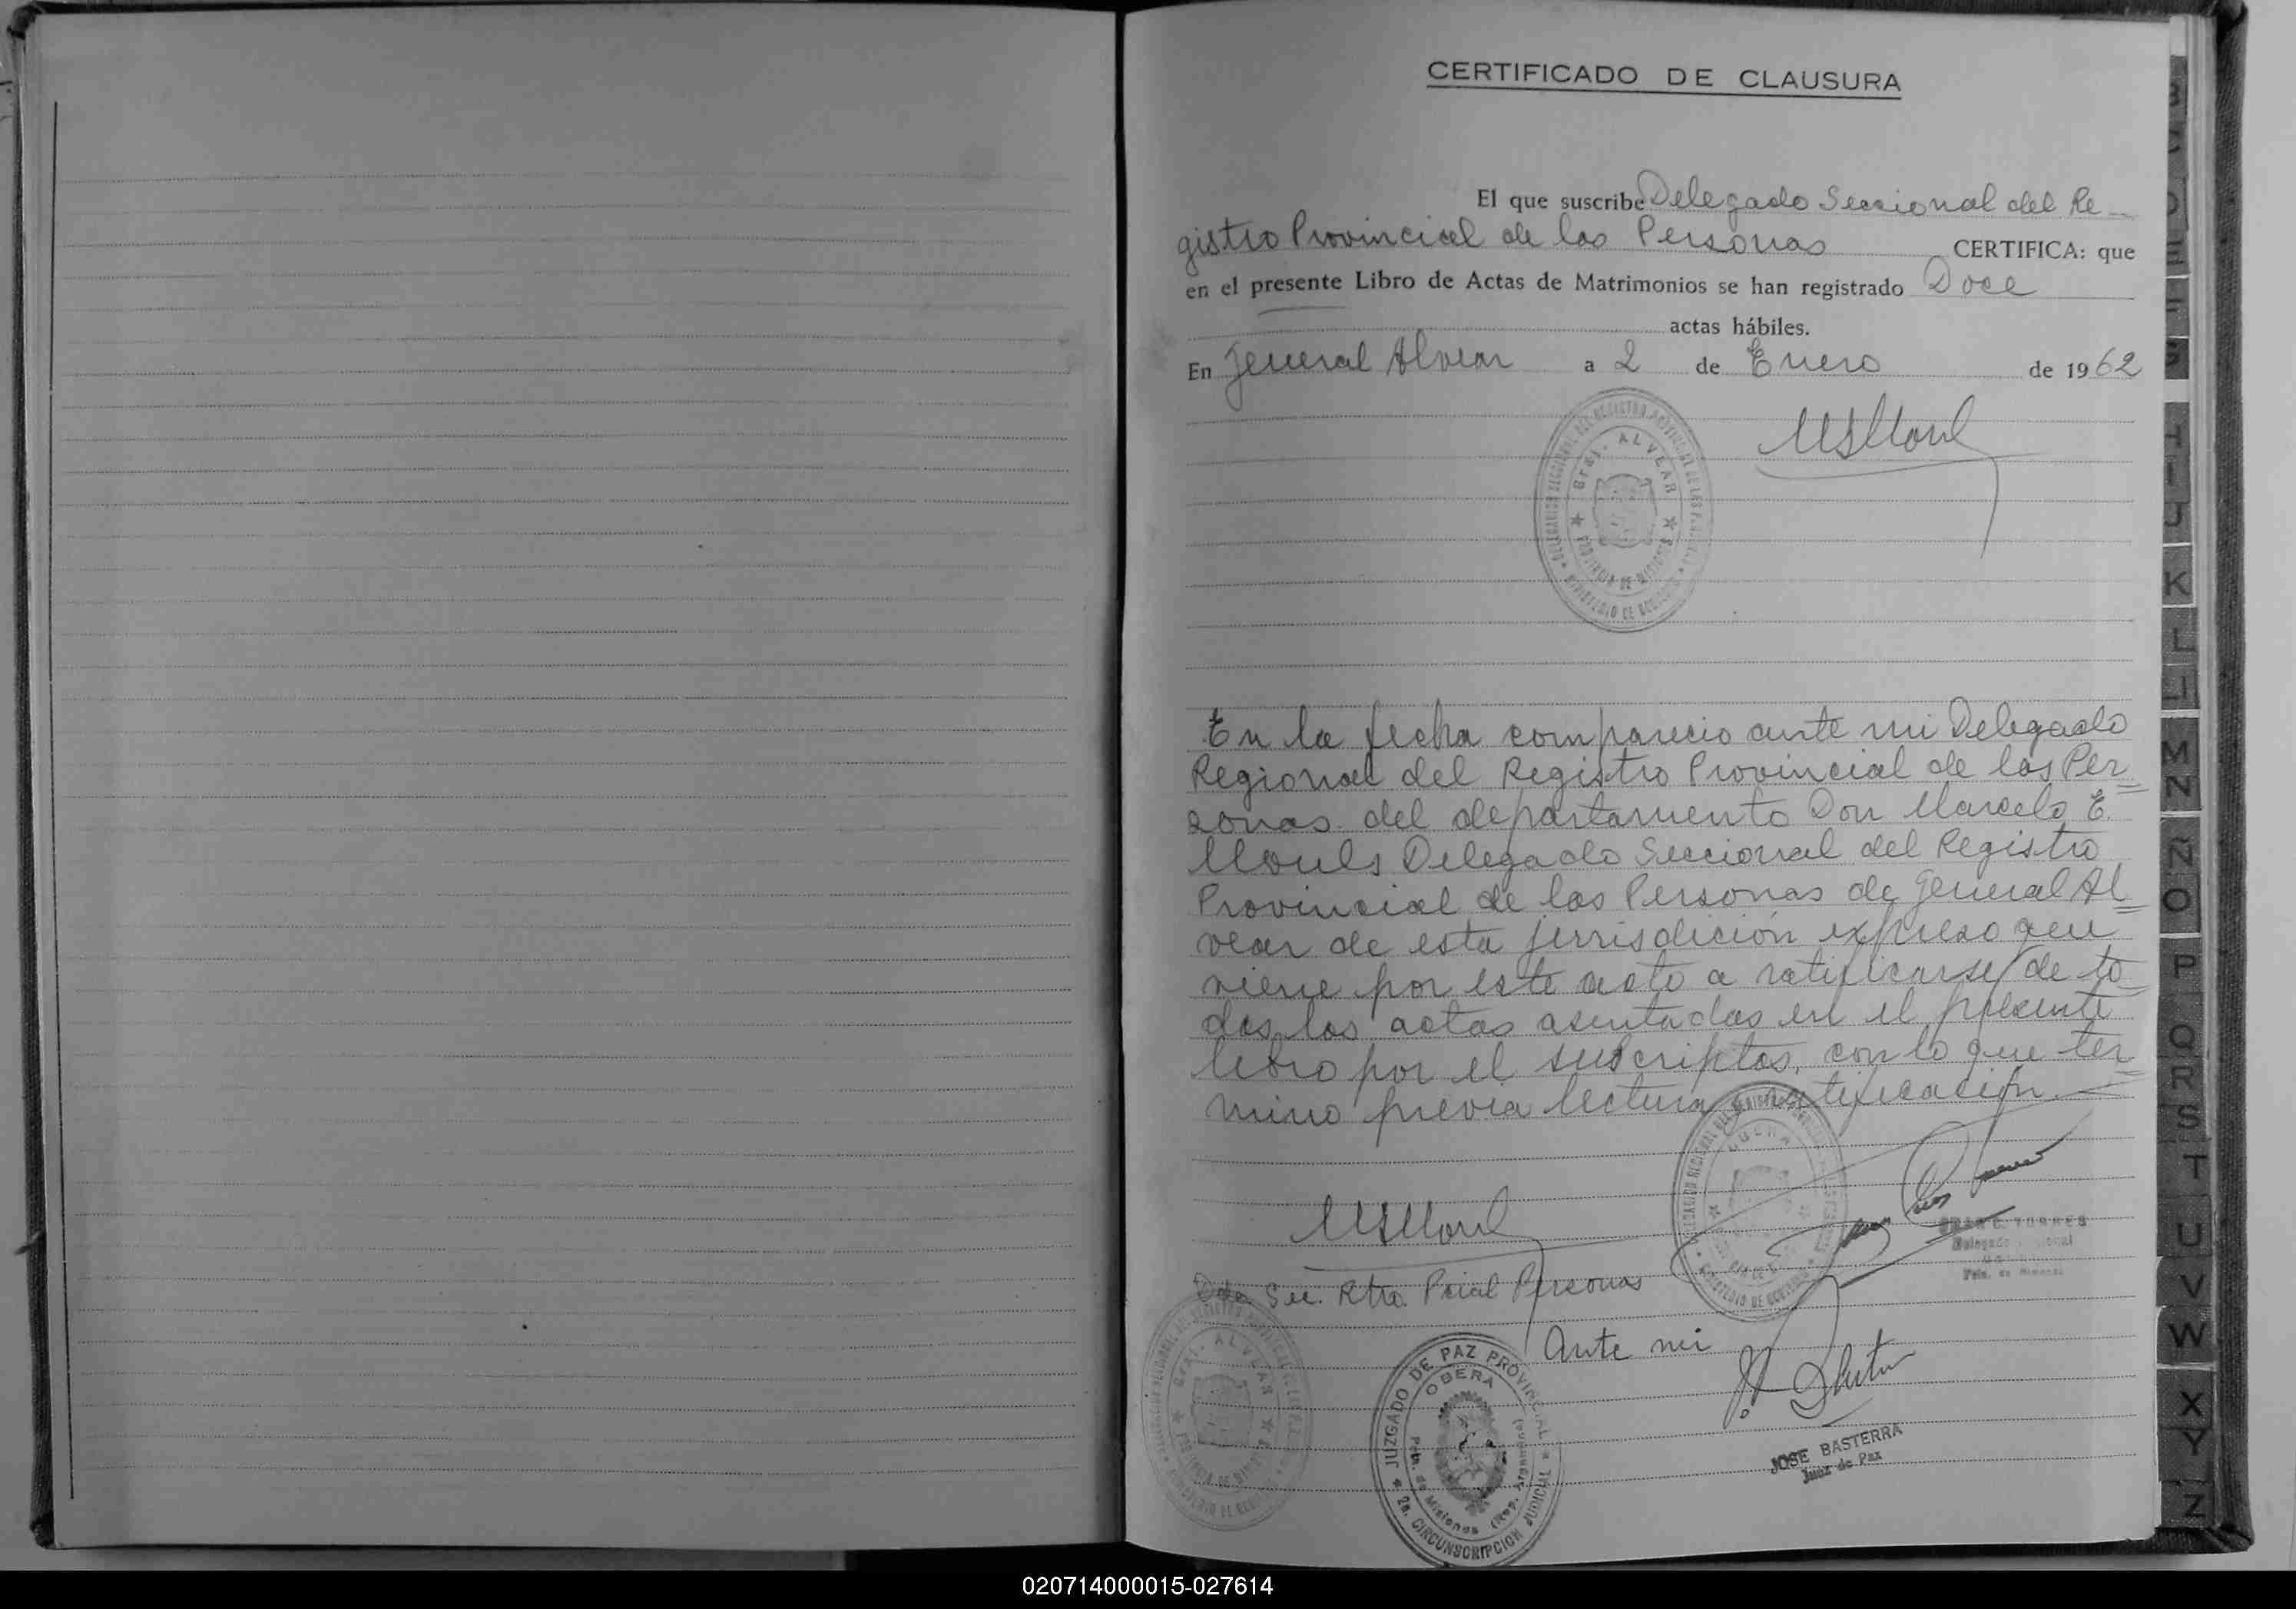 CERTIFICADO DE CLAUSURA
El que suscribe Delegado Seccional del Re-
gistro Provincial de las Personas CERTIFICA: que
en el presente Libro de Actas de Matrimonios se han registrado Doce
actas hábiles.
En General Alvear a 2 de Enero de 1962
Gral. ALVEAR
En la fecha comparecio ante mi Delegado
Regional del Registro Provincial de las Per
sonas del departamento Don Marcelo E.
Delegado Seccional del Registro
Provincial de las Personas de General Al
vear de esta jurrisdición expreso que
viene por este acto a ratificarse de to
das las actas asentadas en el presente
libro por el suscriptos, con lo que ter
mino previa lectura ratificación.
Sec. Rtro. Pcial Personas
Ante mi
JUZGADO DE PAZ PROVINCIAL
OBERA
Pcia. de Misiones (Rep. Argentina)
2a. CIRCUNSCRIPCION JUDICIAL
JOSE BASTERRA
Juez de Paz
D
E
F
G
H
I
J
K
L
LL
M
N
Ñ
O
P
Q
R
S
T
U
V
W
X
Y
Z
020714000015-027614